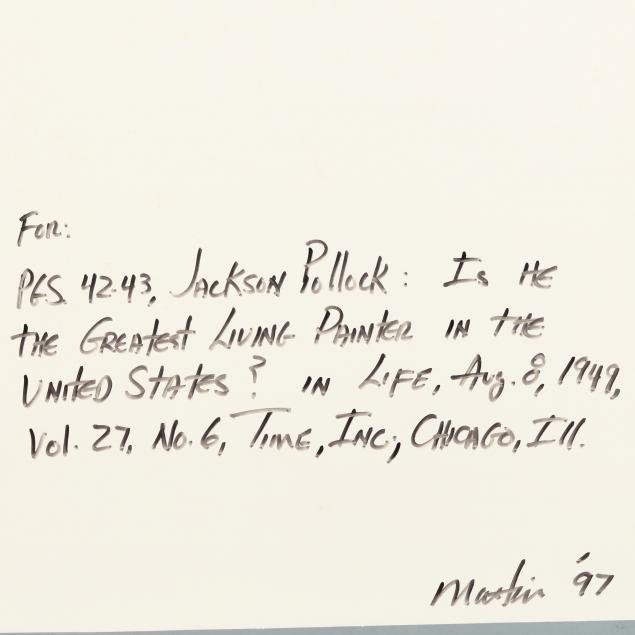 For:
PGS. 42-43, Jackson Pollock: Is He
the Greatest Living Painter in the
United States? in LIFE, Aug. 8, 1949,
Vol. 27, No. 6, Time, Inc., Chicago, Ill.
Martin '97